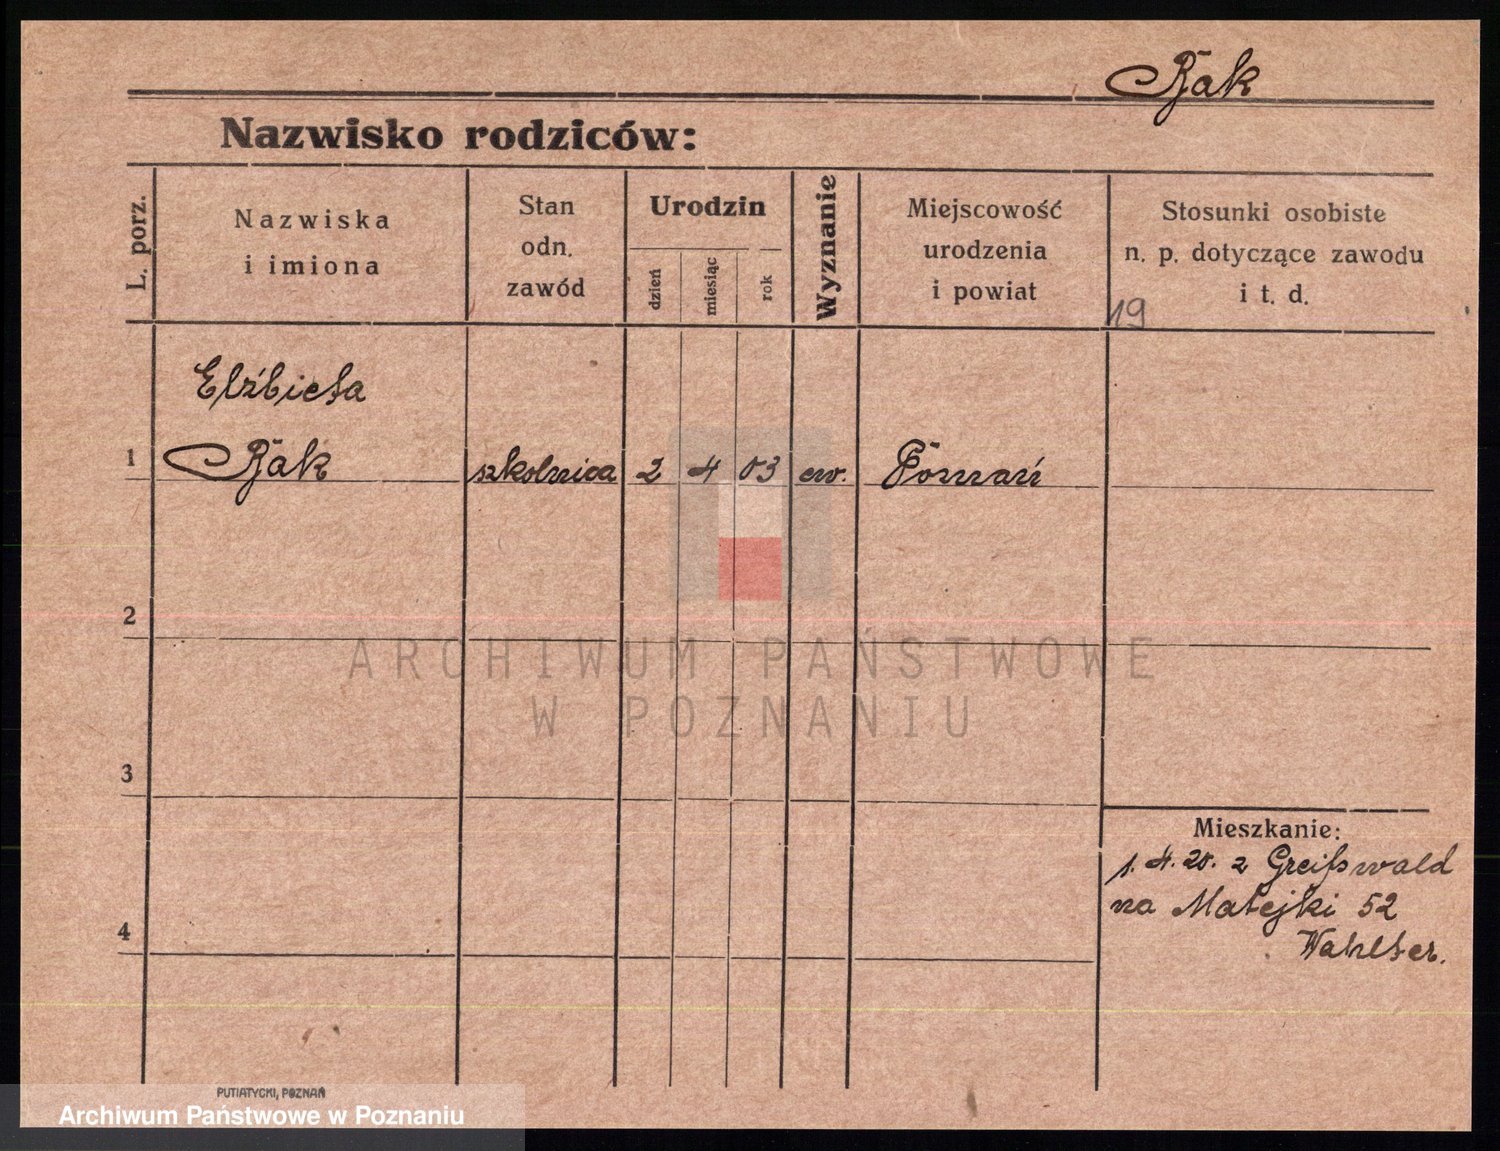 Bak
Nazwisko rodziców:
L. porz.
Nazwiska
i imiona
Stan
odn.
zawód
Urodzin
dzień
miesiąc
rok
Wyznanie
Miejscowość
urodzenia
i powiat
Stosunki osobiste
n. p. dotyczące zawodu
i t. d.
19
Elżbieta
1 Bak szkolnica 2 4 03 ew. Poznań
2
ARCHIWUM PAŃSTWOWE
W POZNANIU
3
Mieszkanie:
1. 4. 20. z Greifswald
na Matejki 52
4
PUTIATYCKI, POZNAŃ
Archiwum Państwowe w Poznaniu